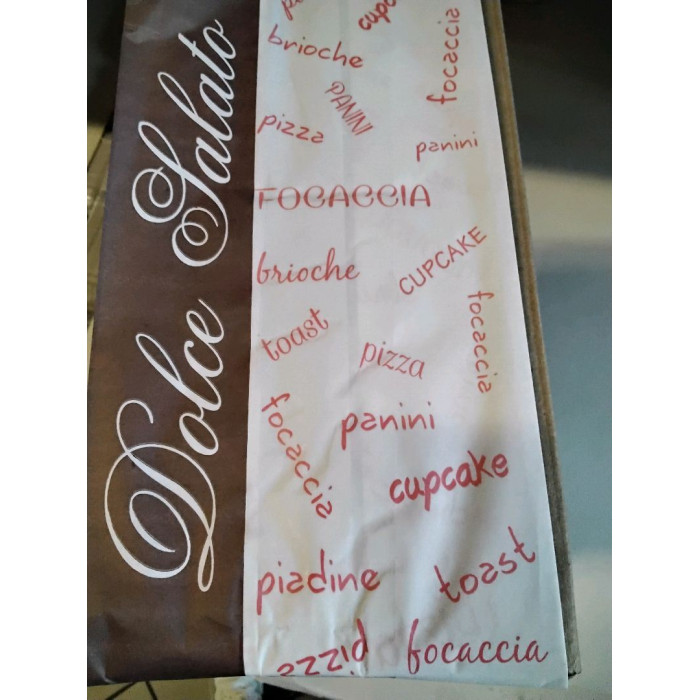 Dolce Salato
cupc
brioche
focaccia
PANINI
pizza
panini
FOCACCIA
brioche
CUPCAKE
toast
focaccia
pizza
focaccia
panini
cupcake
piadine
toast
pizza
focaccia